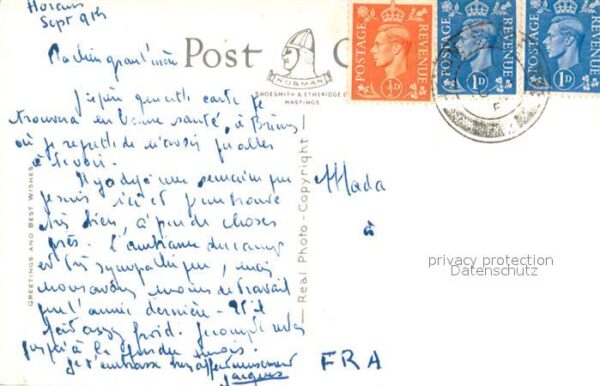 Sept 9th
Ma chère grand'mère
Post C
NORMAN
SHOESMITH & ETHERIDGE
HASTINGS
POSTAGE REVENUE ½D
POSTAGE REVENUE 1D
POSTAGE REVENUE 1D
J'espère que cette carte te
trouvera en bonne santé, à
où je regrette de n'avoir pu aller
te voir.
Il y a déjà une semaine que
je suis ici et j'en trouve
très bien, à peu de choses
près. L'ambiance du camp
est très sympathique, mais
nous avons moins de travail
que l'année dernière - Et il
fait assez froid. Je compte rester
jusqu'à la fin du mois.
Je t'embrasse très affectueusement
Jacques
GREETINGS AND BEST WISHES
Real Photo - Copyright
Mada
à
privacy protection
Datenschutz
FRA